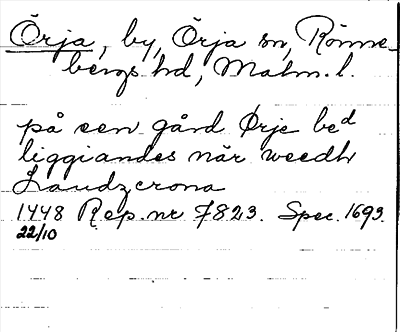 Örja, by, Örja sn, Rönne-
bergs hd, Malm. l.
på een gård Ørje bed
liggiandes när weedh
Landzcrona
1448 Rep. nr 7823. Spec. 1693.
22/10